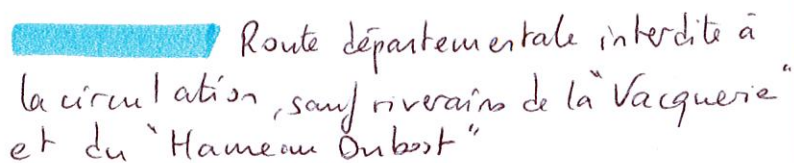 Route départementale interdite à
la circulation, sauf riverains de la "Vacquerie"
et du "Hameau Dubost"